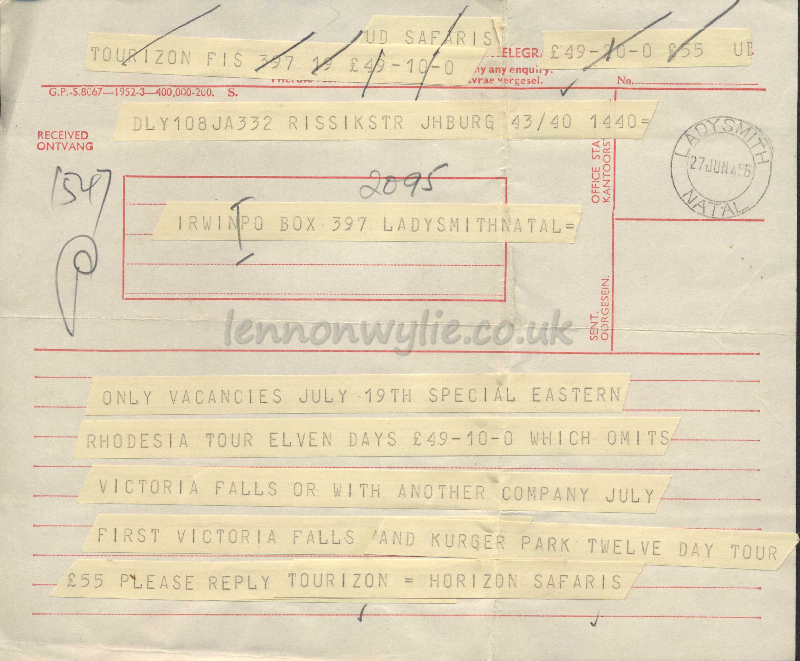 UD SAFARIS
TOURIZON FIS 397 19 £49-10-0
TELEGRA £49-10-0 £55 UD
any enquiry.
No.
G.P.-S.8067—1952-3—400,000-200. S.
DLY108JA332 RISSIKSTR JHBURG 43/40 1440=
RECEIVED
ONTVANG
OFFICE STA
KANTOORST
LADYSMITH
27 JUN 56
NATAL
154
2095
IRWINPO BOX 397 LADYSMITHNATAL=
T
SENT.
OORGESEIN.
lennonwylie.co.uk
ONLY VACANCIES JULY 19TH SPECIAL EASTERN
RHODESIA TOUR ELVEN DAYS £49-10-0 WHICH OMITS
VICTORIA FALLS OR WITH ANOTHER COMPANY JULY
FIRST VICTORIA FALLS AND KURGER PARK TWELVE DAY TOUR
£55 PLEASE REPLY TOURIZON = HORIZON SAFARIS